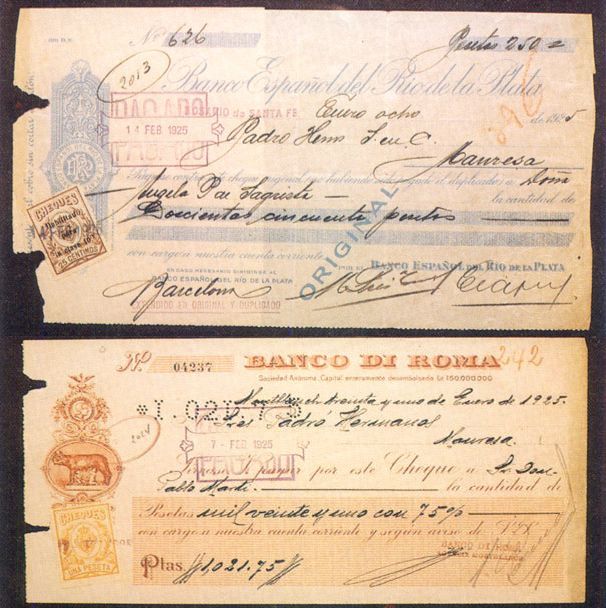 Nº 626 Pesetas 250=
2013
Banco Español del Rio de la Plata
PAGADO
ROSARIO de SANTA FE Enero ocho de 1925
14 FEB 1925
Padró Hnos S. en C.
Manresa
Páguese contra este cheque original, no habiendo sido pagado el duplicado a Doña
Angela Pai Sagrista
la cantidad de
Doscientas cincuenta pesetas
CHEQUES
Habilitado
25 CENTIMOS
ORIGINAL
con cargo a nuestra cuenta corriente
POR EL BANCO ESPAÑOL DEL RIO DE LA PLATA
EN CASO NECESARIO DIRIGIRSE AL
BANCO ESPAÑOL DEL RIO DE LA PLATA
Barcelona
EXPEDIDO EN ORIGINAL Y DUPLICADO
Nº 04237 BANCO DI ROMA 242
Sociedad Anónima, Capital enteramente desembolsado Lit 150,000,000
treinta y uno de Enero de 1925.
2014
Sres Padró Hermanos
7 - FEB 1925
Manresa
PAGADO
por este Cheque a Sr. Don
Pablo Martí
la cantidad de
CHEQUES
UNA PESETA
Pesetas mil veinte y uno con 75%
con cargo a nuestra cuenta corriente y según aviso de
BANCO DI ROMA
Ptas. 1,021.75